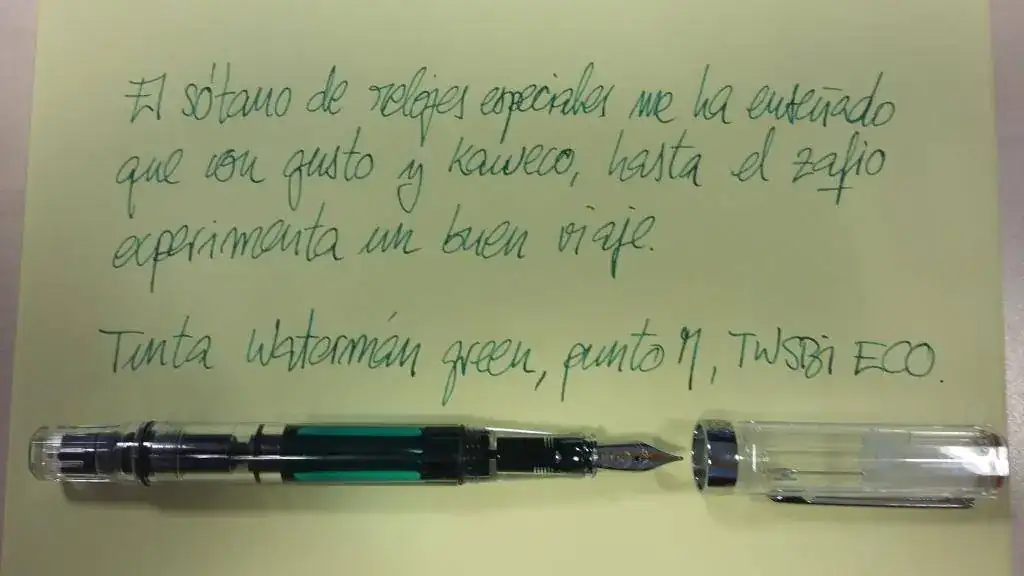 El sótano de relojes especiales me ha enseñado
que con gusto y Kaweco, hasta el zafio
experimenta un buen viaje.
Tinta Watermán green, punto M, TWSBi ECO.